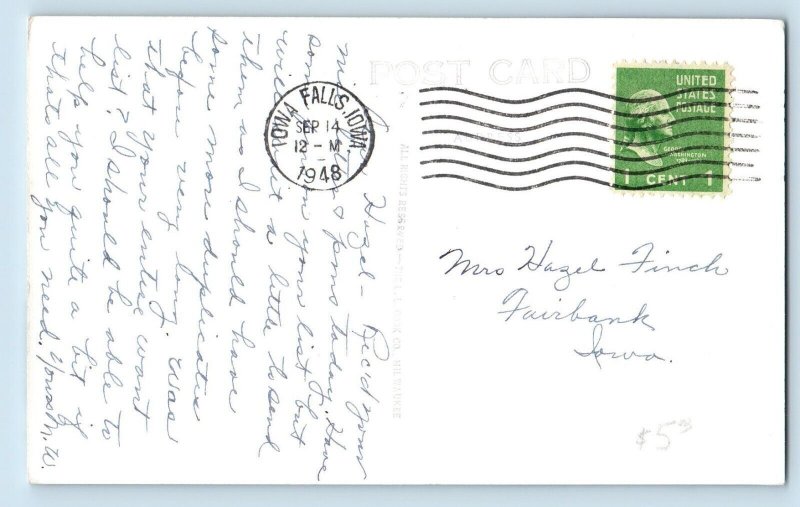 POST CARD
UNITED
STATES
POSTAGE
GEORGE
WASHINGTON
1 CENT 1
IOWA FALLS, IOWA
SEP 14
12 - M
1948
Mrs Hazel Finch
Fairbank
Iowa.
$5
Hazel - Rec'd your
letter & pms today. Have
some on your list but
will wait a little to send
them as I should have
some more duplicates
before very long. Was
that your entire want
list? I should be able to
help you quite a bit if
thats all you need. Yours M. W.
ALL RIGHTS RESERVED
CO. MILWAUKEE